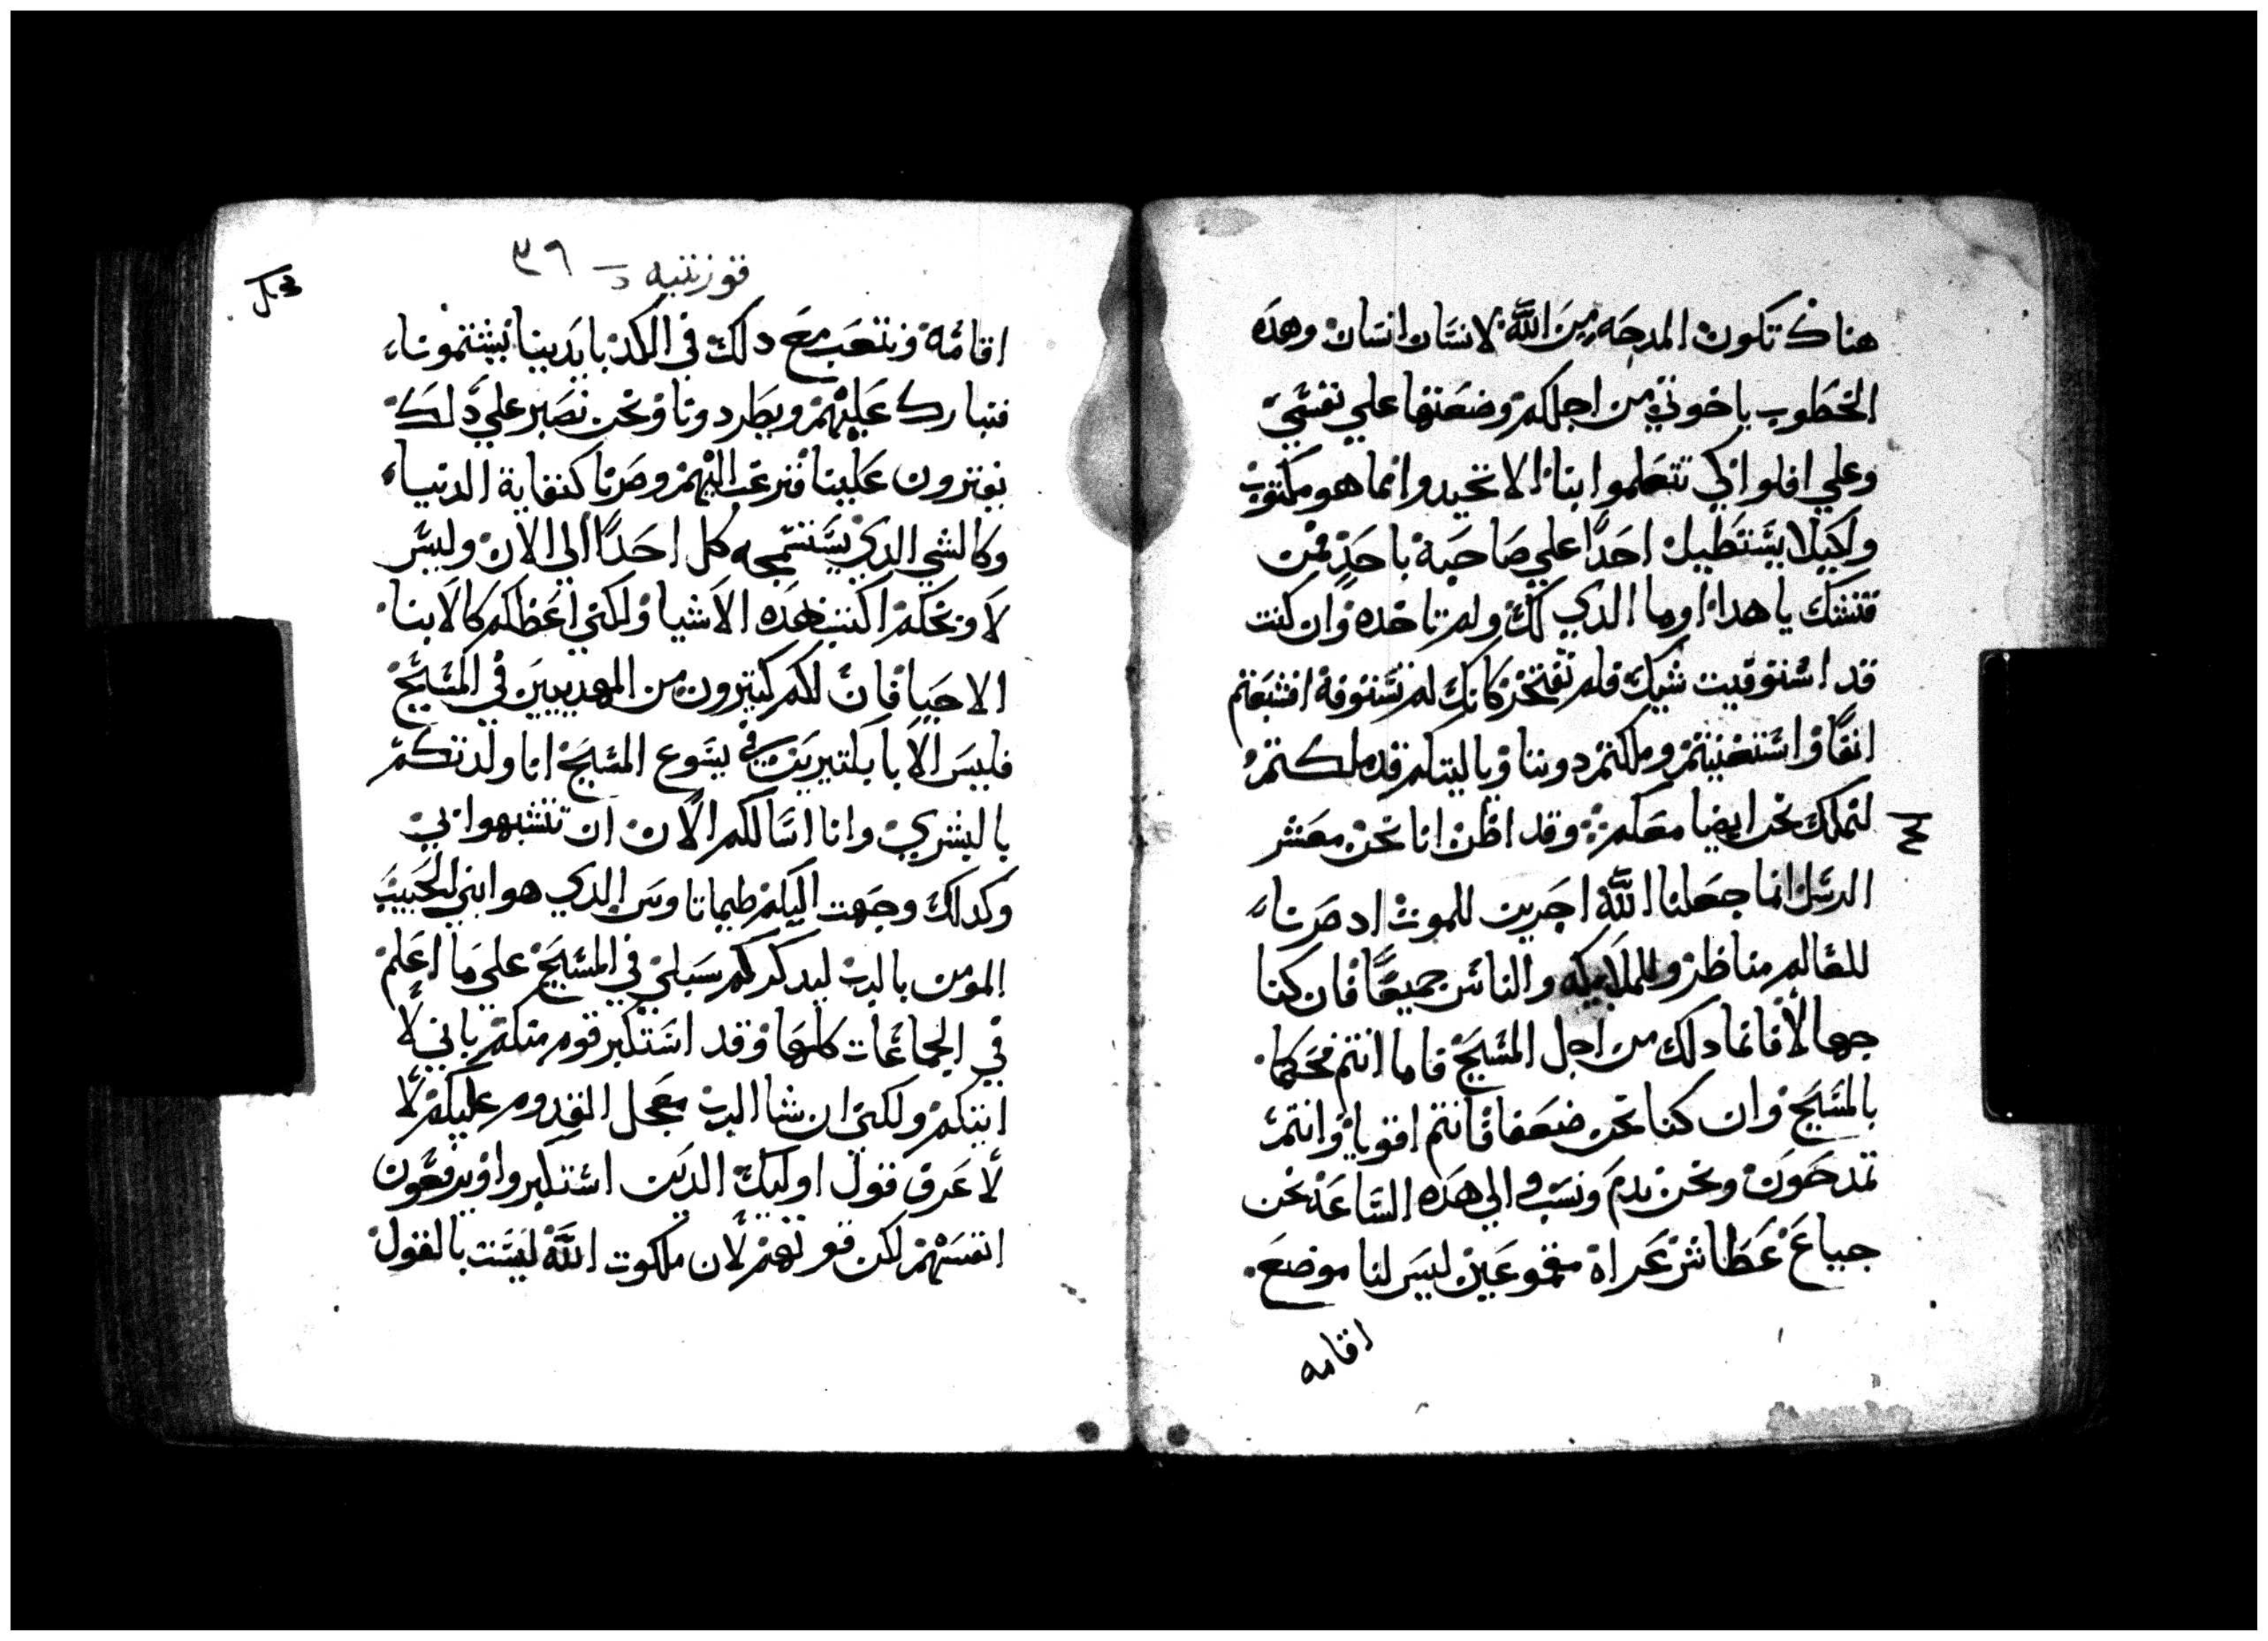 هناك تكون المدحه من الله لانسان انسان وهده
الخطوب ياخوتي من اجلكم وضعتها علي نفسي
وعلي افلوا لكي تتعلموا بنا الا تحيدوا انما هو مكتوب
ولكيلا يستطيل احدا علي صاحبه باحد فمن
فتشك يا هدا او ما الدي لك ولم تاخده وان كنت
قد استوفيت شيك فلم تفتخر كانك لم تستوفه افشبعتم
انفا واستغنيتم وملكتم دوننا وياليتكم قد ملكتم
لنملك نحن ايضا معكم وقد اظن انا نحن معشر
الرسل انما جعلنا الله اخرين للموت اد صرنا
للعالم مناظر وللملايكه والناس جميعا فان كنا
جهالا فانما دلك من اجل المسيح فاما انتم فحكما
بالمسيح وان كنا نحن ضعفا فانتم اقويا وانتم
تمدحون ونحن ندم ونسب والي هده الساعه نحن
جياع عطاش عراه مقموعين ليس لنا موضع
اقامه
قورنتيه د ٣٦
اقامه ونتعب مع دلك في الكد بايدينا يشتمونا
فنبارك عليهم ويطردونا ونحن نصبر علي دلك
يفترون علينا فنرغب اليهم وصرنا كنفاية الدنيا
وكالشي الدي يستسمجه كل احدا الي الان وليس
لاوبخكم اكتب هده الاشيا ولكني اعظكم كالابنا
الاحبا فان لكم كتيرون من المهدبين في المسيح
فليس الابا بكتيرين في يسوع المسيح انا ولدتكم
بالبشري وانا اسالكم الان ان تتشبهوا بي
وكدلك وجهت اليكم طيماتاوس الدي هو ابني الحبيب
المومن بالرب ليدكركم سبلي في المسيح علي ما اعلم
في الجماعات كلها وقد استكبر قوم منكم باني لا
اتيكم ولكني ان شا الرب معجل القدوم عليكم لا
لاعرف قول اوليك الدين استكبروا ويرفعون
انفسهم لكن قوتهم لان ملكوت الله ليست بالقول